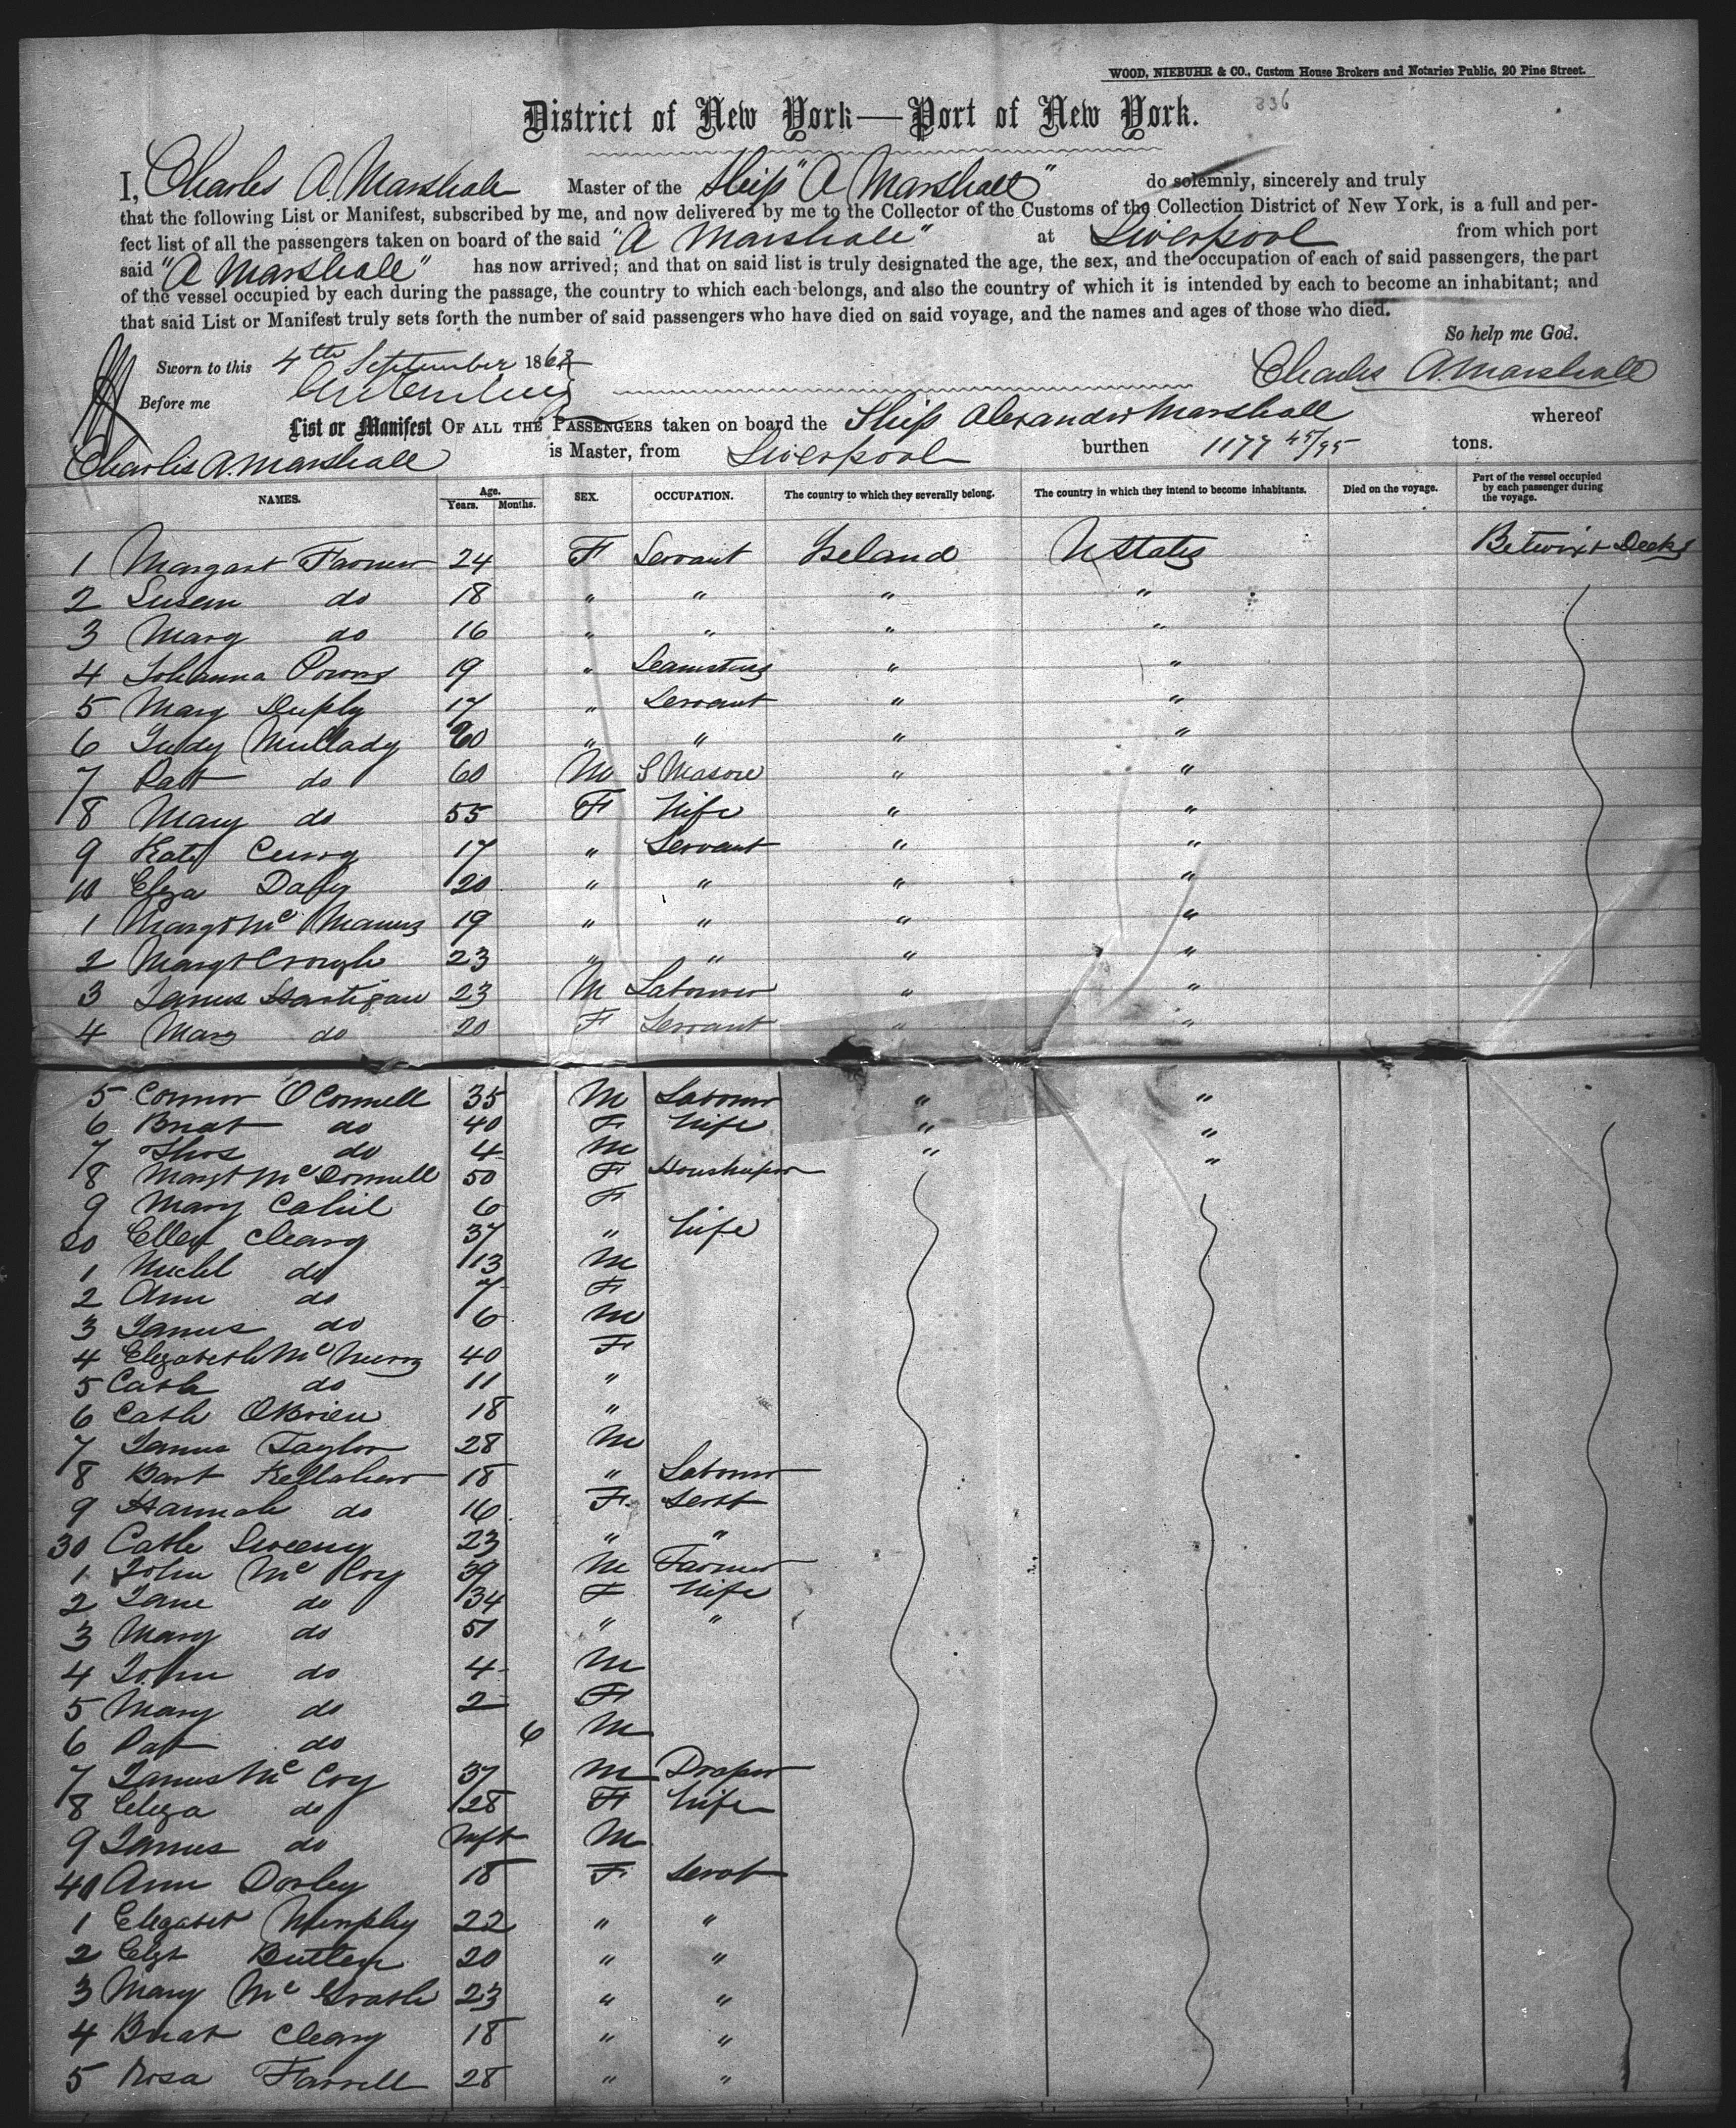 WOOD, NIEBUHR & CO., Custom House Brokers and Notaries Public, 20 Pine Street.
336
District of New York—Port of New York.
I, Charles A. Marshall Master of the Ship "A Marshall" do solemnly, sincerely and truly
that the following List or Manifest, subscribed by me, and now delivered by me to the Collector of the Customs of the Collection District of New York, is a full and per-
fect list of all the passengers taken on board of the said "A Marshall" at Liverpool from which port
said "A Marshall" has now arrived; and that on said list is truly designated the age, the sex, and the occupation of each of said passengers, the part
of the vessel occupied by each during the passage, the country to which each belongs, and also the country of which it is intended by each to become an inhabitant; and
that said List or Manifest truly sets forth the number of said passengers who have died on said voyage, and the names and ages of those who died.
So help me God.
Sworn to this 4th September 186
Charles A. Marshall
Before me
List or Manifest OF ALL THE PASSENGERS taken on board the Ship Alexander Marshall whereof
Charles A. Marshall is Master, from Liverpool burthen 1177 45/95 tons.
NAMES. Age. Years. Months. SEX. OCCUPATION. The country to which they severally belong. The country in which they intend to become inhabitants. Died on the voyage. Part of the vessel occupied by each passenger during the voyage.
1 Margaret Farmer 24 F Servant Ireland U States Betwixt Decks
2 Susan do 18 " " " "
3 Mary do 16 " " " "
4 Johanna Powers 19 " Seamstress " "
5 Mary 17 " Servant " "
6 Judy Mullady " " " "
7 Patt do 60 M S Mason " "
8 Mary do 55 F Wife " "
9 Kate 17 " Servant " "
10 Eliza Daly 20 " " " "
1 Margt McManus 19 " " " "
2 Margt Crough 23 " " " "
3 James Hartigan 23 M Labourer " "
4 Mary do 20 F Servant " "
5 Connor OConnell 35 M Labourer " "
6 Bridt do 40 F Wife " "
7 Thos do 4 M " "
8 Margt McDonnell 50 F Housekeeper
9 Mary Cahil 6 F
20 Ellen Cleary 37 " Wife
1 Michl do 13 M
2 Ann do 7 F
3 James do 6 M
4 Elizabeth Mc 40 F
5 Cath do 11 "
6 Cath OBrien 18 "
7 James Taylor 28 M
8 Bart Kellaher 18 " Labourer
9 Hannah do 16 F Servt
30 Cath Sweeny 23 " "
1 John McCoy 39 M Farmer
2 Jane do 34 F Wife
3 Mary do " "
4 John do 4 M
5 Mary do 2 F
6 Pat do 6 M
7 James McCoy 37 M Draper
8 Eliza do 28 F Wife
9 James do Inft M
40 Ann Dorley 18 F Servt
1 Elizabet Murphy 22 " "
2 Elizt Butler 20 " "
3 Mary McGrath 23 " "
4 Bridt Cleary 18 " "
5 Rosa Farrell 28 " "